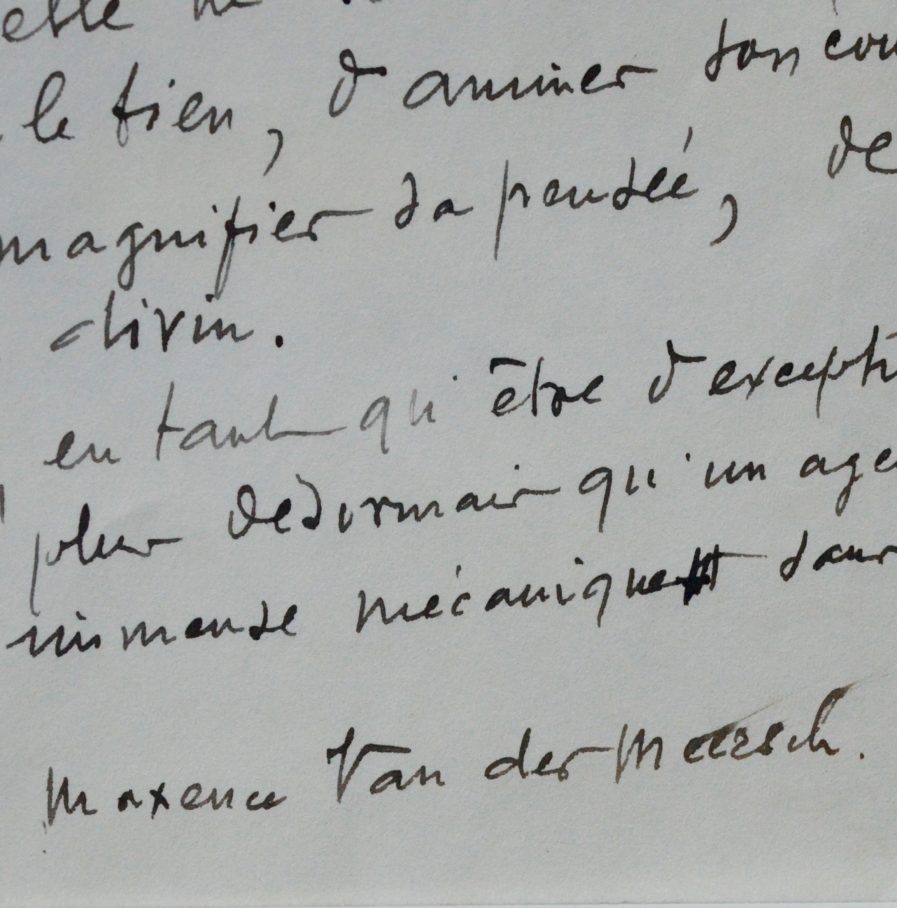 elle ne
le tien, d'animer son cou
magnifier sa pensée, de
divin.
en tant qu'être d'excepti
plus désormais qu'un age
immense mécanique sans
Maxence Van der Meersch.